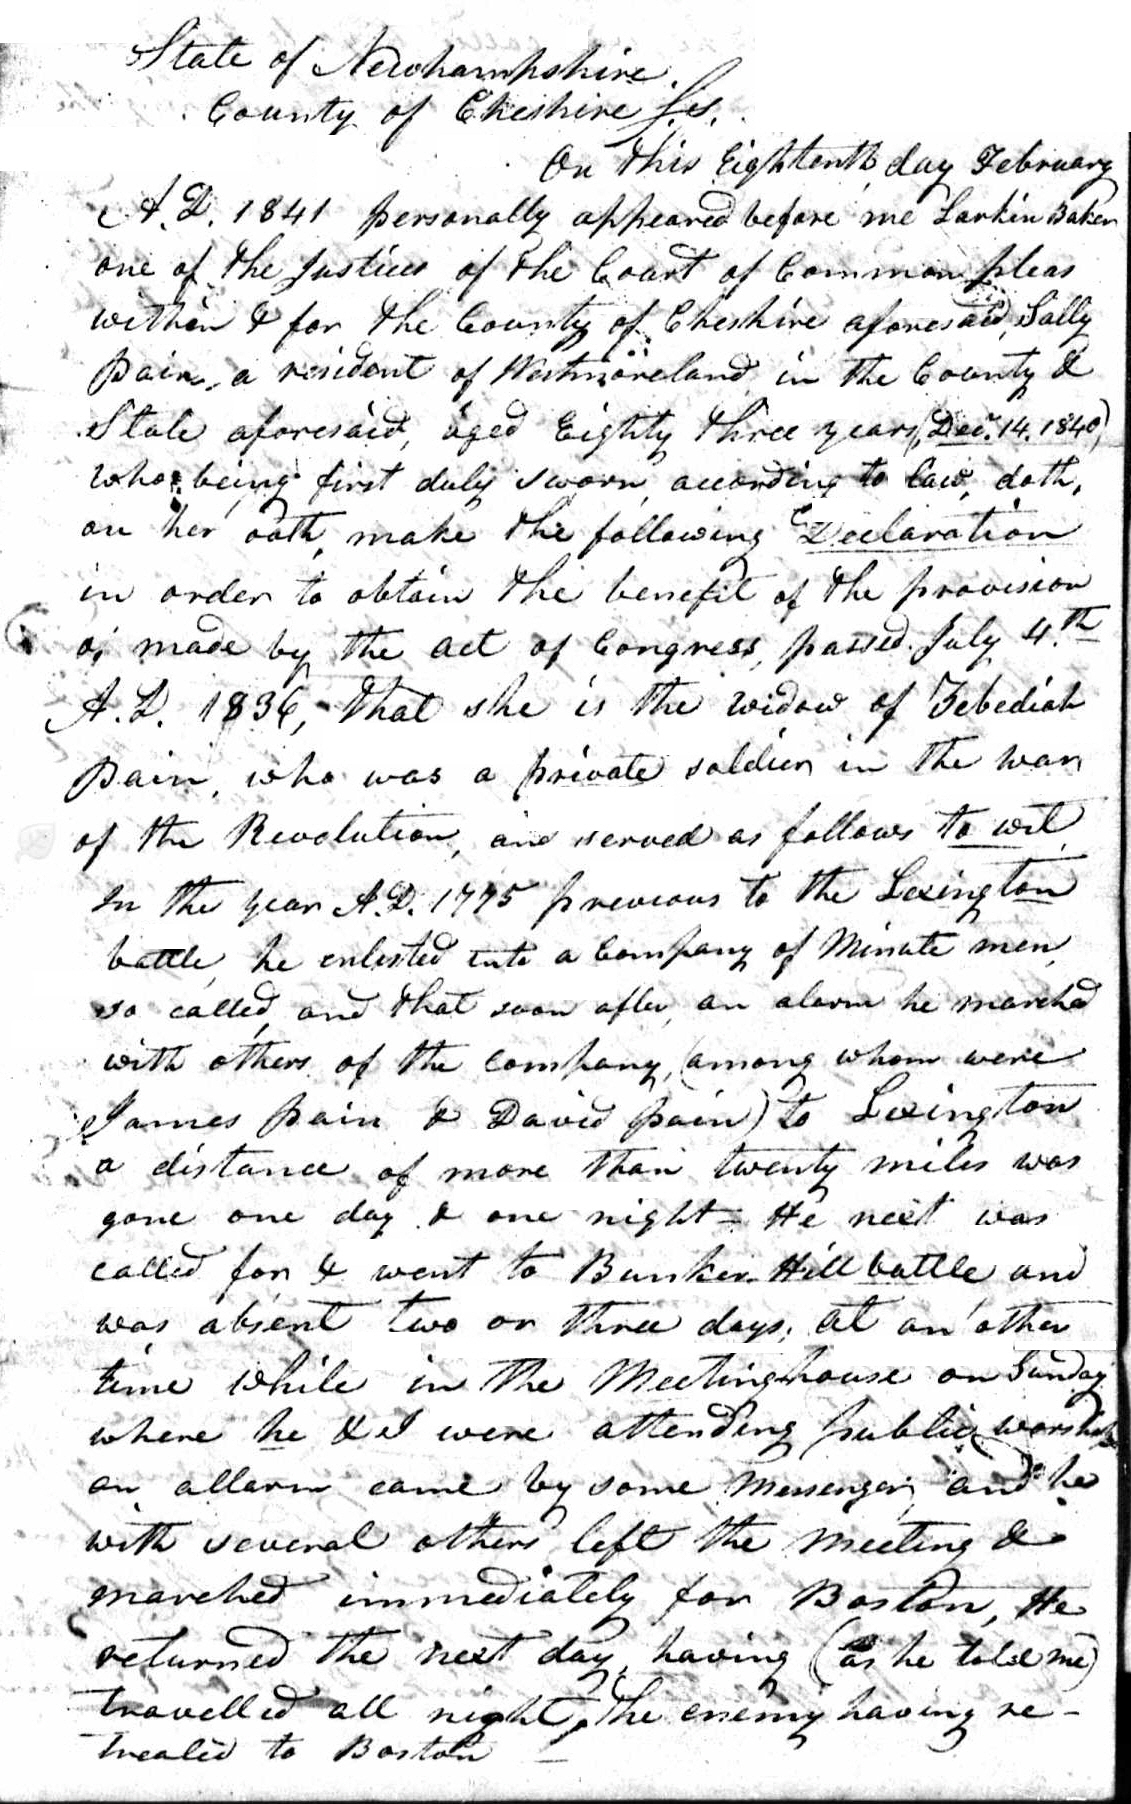 State of Newhampshire.
County of Cheshire S.s.
On this Eightenth day February
A.D. 1841 personally appeared before me Larkin Baker
one of the Justices of the Court of Common pleas
within & for the County of Cheshire aforesaid, Sally
Pain, a resident of Westmoreland in the County &
State aforesaid, aged Eighty three years, (Decr. 14. 1840)
who being first duly sworn, according to law, doth,
on her oath, make the following Declaration
in order to obtain the benefit of the provision
made by the act of Congress, passed July 4.th
A.D. 1836, that she is the widow of Zebediah
Pain, who was a private soldier in the war
of the Revolution, and served as follows to wit,
In the year A.D. 1775 previous to the Lexington
battle, he enlisted into a Company of Minute men,
so called, and that soon after, an alarm he marched
with others of the company, (among whom were
James Pain & David Pain) to Lexington
a distance of more than twenty miles was
gone one day & one night = He next was
called for & went to Bunker Hill battle and
was absent two or three days; At an other
time while in the Meetinghouse on Sunday
where he & I were attending public worship
an allarm came by some Messenger, and he
with several others left the Meeting &
marched immediately for Boston, He
returned the next day, having (as he told me)
travelled all night, the enemy having re-
treated to Boston —